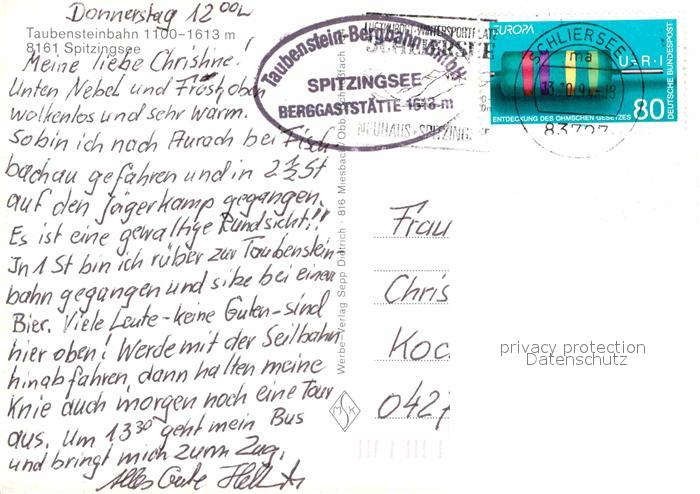 Donnerstag 12 00h
Taubensteinbahn 1100-1613 m
8161 Spitzingsee
Meine liebe Christine!
Unten Nebel und Frost, oben
wolkenlos und sehr warm.
So bin ich nach Aurach bei Fisch
bachau gefahren und in 2 ½ St
auf den Jägerkamp gegangen.
Es ist eine gewaltige Rundsicht!!
In 1 St bin ich rüber zur Taubenstein-
bahn gegangen und sitze bei einem
Bier. Viele Leute - keine Guten - sind
hier oben! Werde mit der Seilbahn
hinabfahren, dann halten meine
Knie auch morgen noch eine Tour
aus. Um 13 30 geht mein Bus
und bringt mich zum Zug.
Alles Gute
Taubenstein-Bergbahn GmbH
SPITZINGSEE
BERGGASTSTÄTTE 1613 m
SCHLIERSEE
NEUHAUS · SPITZINGSEE
SCHLIERSEE
ma
83727
EUROPA
U=R·I
ENTDECKUNG DES OHMSCHEN GESETZES
80
DEUTSCHE BUNDESPOST
Werbe-Verlag Sepp Dietrich · 816 Miesbach/Obb.
MSK
Frau
Chris
Koc
042
privacy protection
Datenschutz